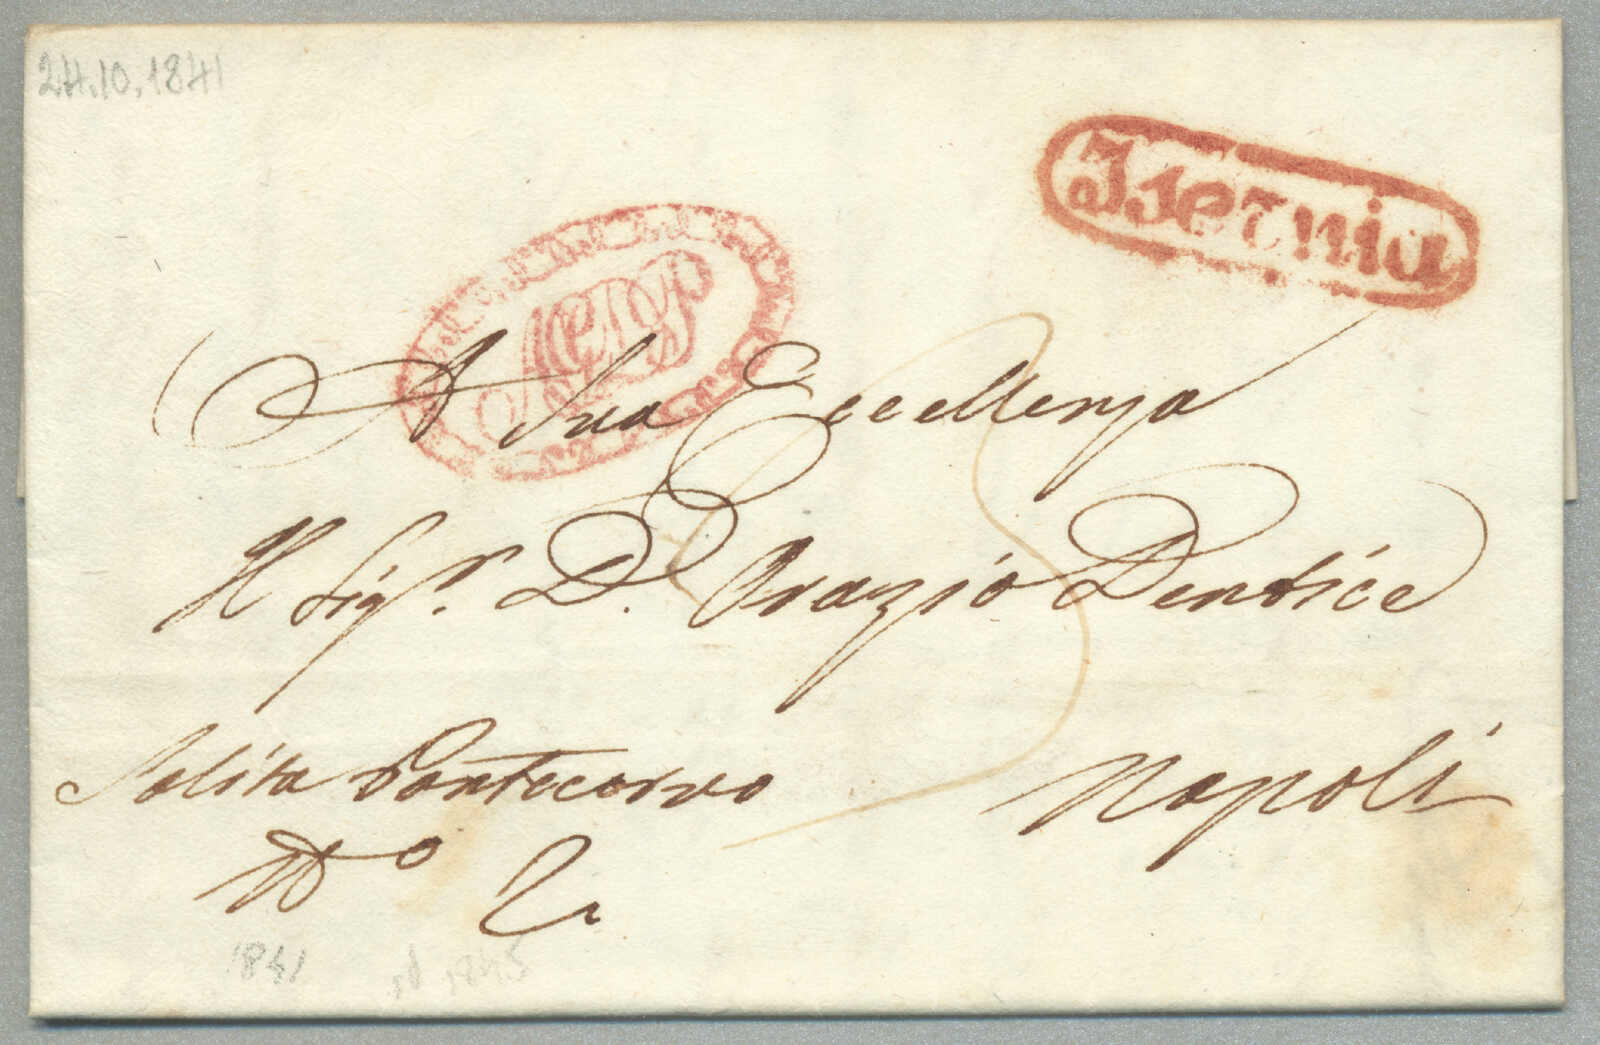 24.10.1841
Isernia
A Sua Eccellenza
Il Sig.r D. Orazio Dentice
Salita Pontecorvo
Napoli
No 2
1841
1845